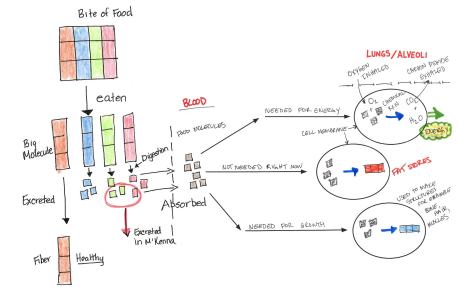 Bite of Food
eaten
Big
Molecule
Digestion
Excreted
Excreted
in M'Kenna
Fiber
Healthy
BLOOD
FOOD MOLECULES
Absorbed
NEEDED FOR ENERGY
CELL MEMBRANE
NOT NEEDED RIGHT NOW
NEEDED FOR GROWTH
LUNGS/ALVEOLI
OXYGEN
INHALED
CARBON DIOXIDE
EXHALED
O₂
CHEMICAL
RXN
CO₂
H₂O
ENERGY
FAT STORES
USED TO MAKE
STRUCTURES
FOR EXAMPLE
BONE,
HAIR,
MUSCLES